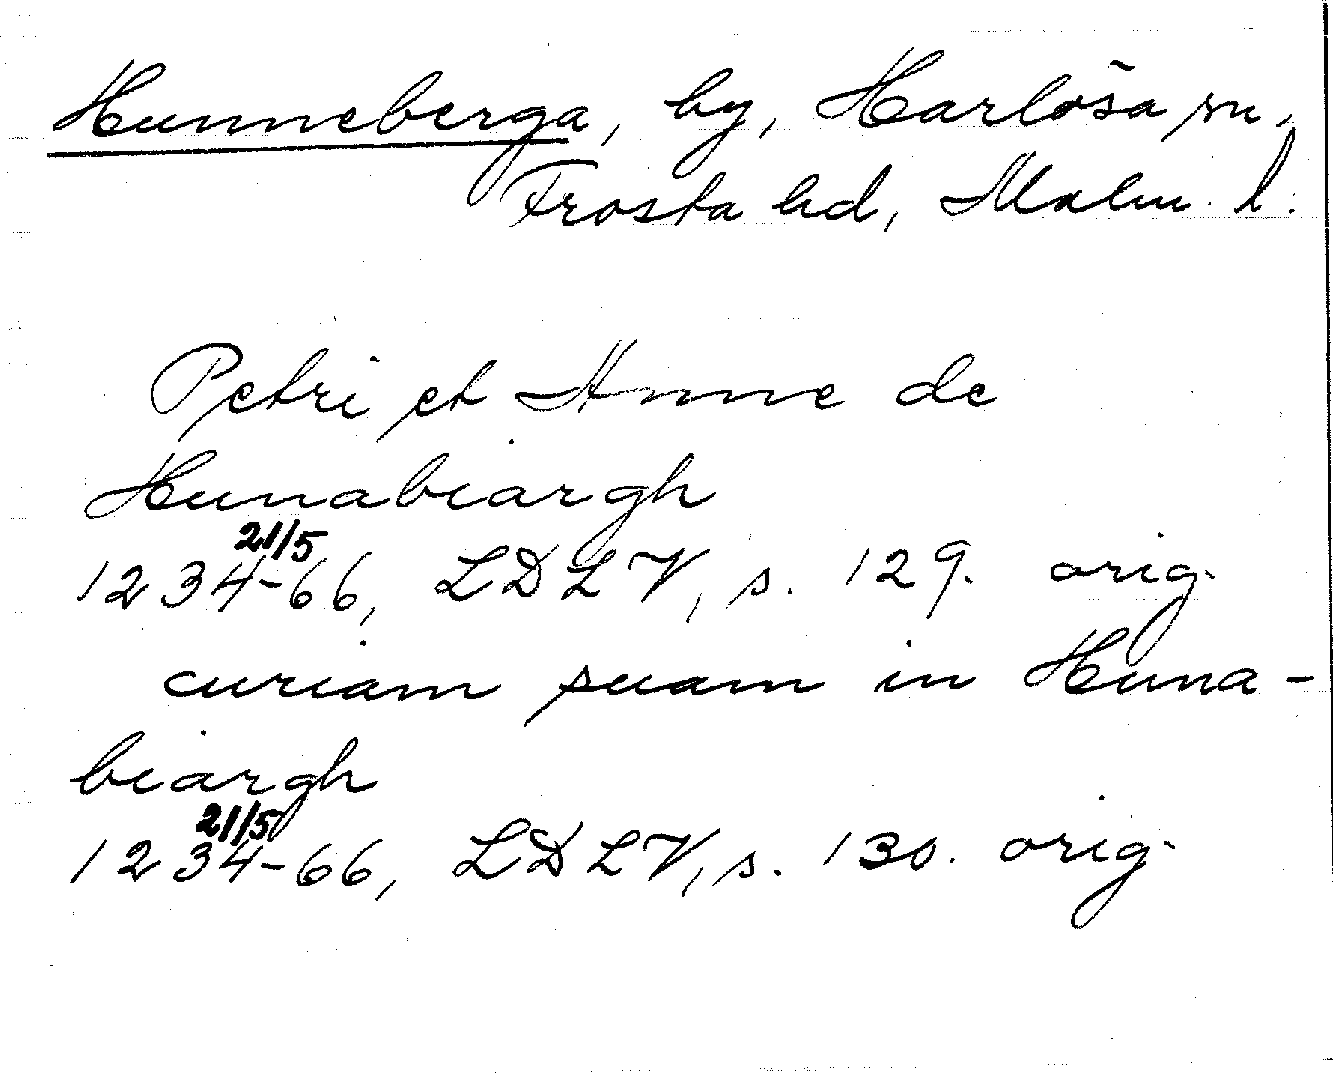 Hunneberga, by, Harlösa sn,
Frosta hd, Malm. l.
Petri et Hnne de
Hunabiargh
21/5
1234-66, LDLV, s. 129. orig.
curiam suam in Huna-
biargh
21/5
1234-66, LDLV, s. 130. orig.